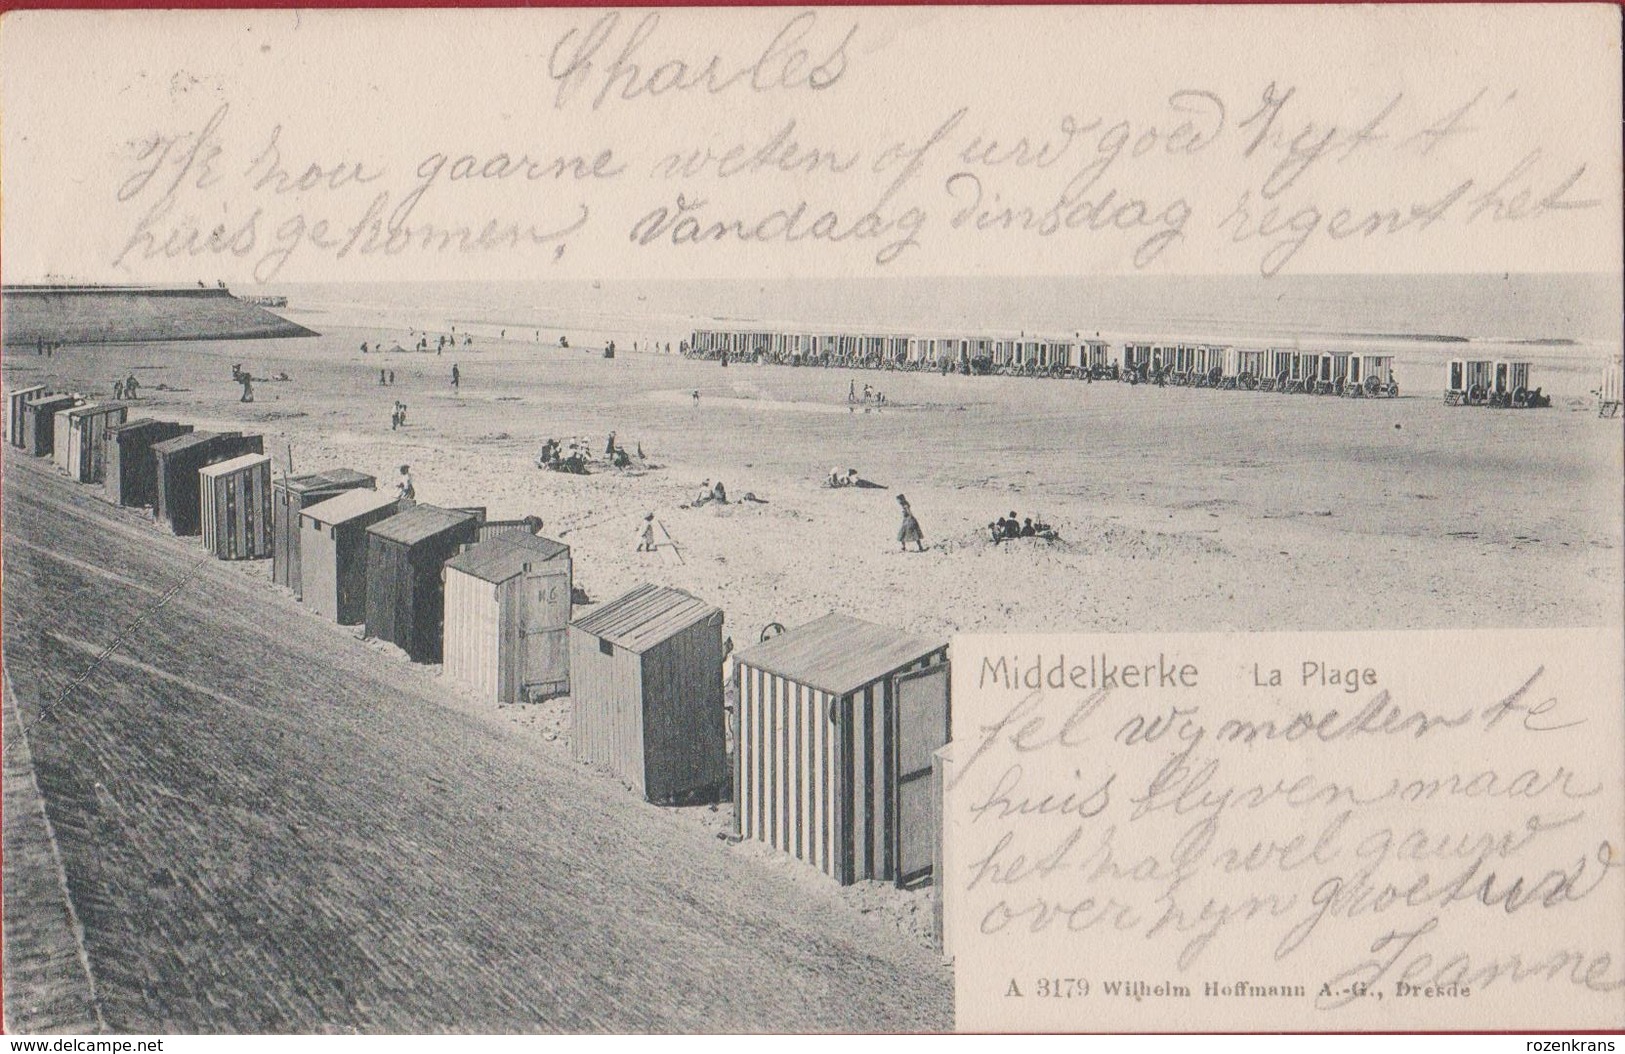 Charles
Ik zou gaarne weten of urd goed zyt t'
huis gekomen. Vandaag dinsdag regent het
Middelkerke La Plage
fel wy moeten te
huis blyven maar
het zal wel gauw
over zyn groet uw
Jeanne
A 3179 Wilhelm Hoffmann A.-G., Dresde
www.delcampe.net
rozenkrans